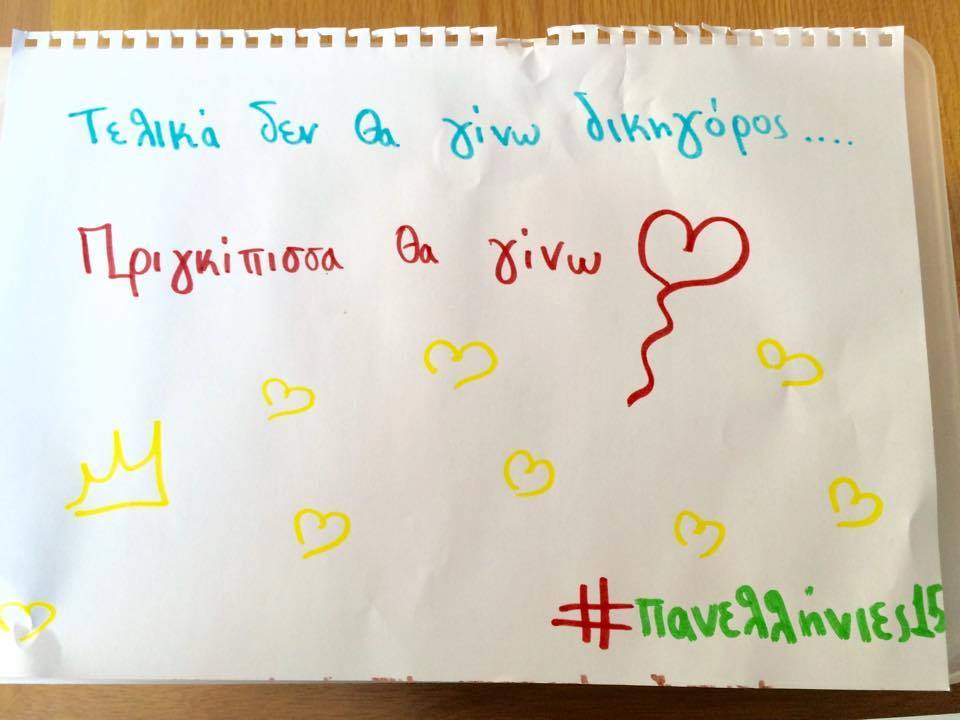 Τελικά δεν θα γίνω δικηγόρος....
Πριγκίπισσα θα γίνω
#πανελλήνιες15